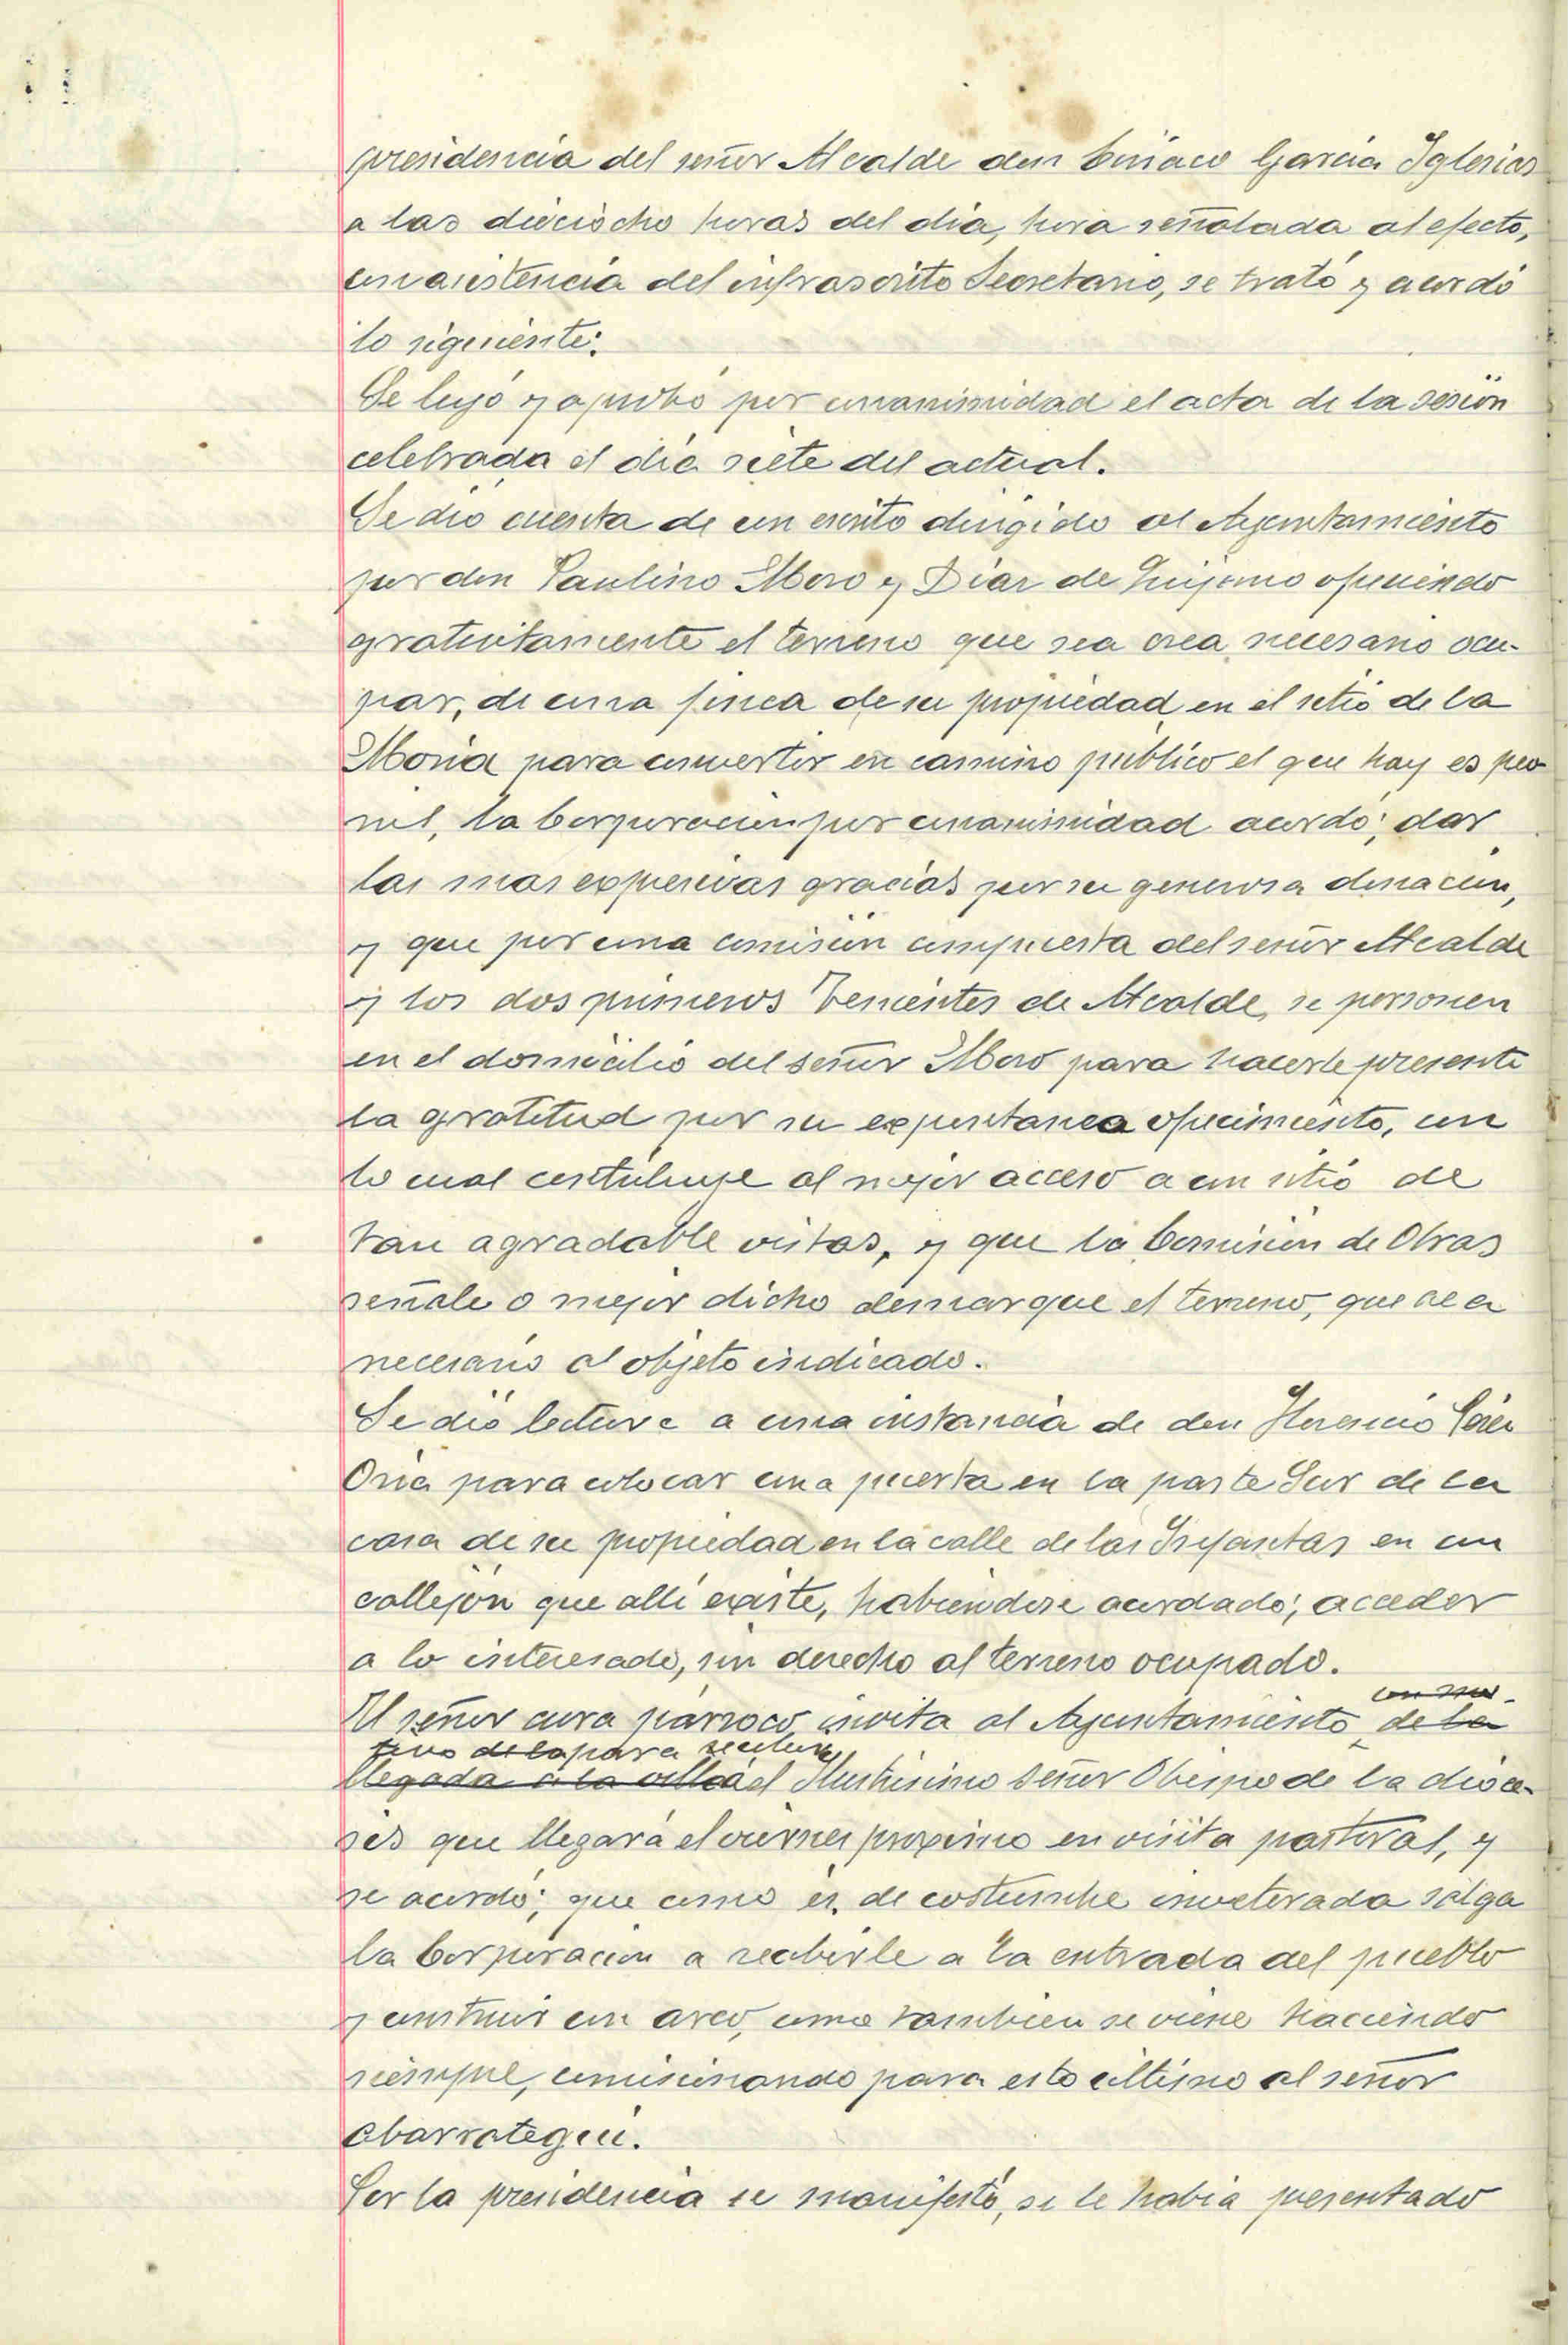 presidencia del señor Alcalde don Ciriaco García Iglesias
a las dieciocho horas del día, hora señalada al efecto,
con asistencia del infrascrito Secretario, se trató y acordó
lo siguiente:
Se leyó y aprobó por unanimidad el acta de la sesión
celebrada el día siete del actual.
Se dió cuenta de un escrito dirigido al Ayuntamiento
por don Paulino Moro y Díaz de Quijano ofreciendo
gratuitamente el terreno que sea crea necesario ocu-
par, de una finca de su propiedad en el sitio de la
para convertir en camino público el que hay es peo
nil, la Corporación por unanimidad acordó; dar
las mas expresivas gracias por su generosa donación,
y que por una comisión compuesta del señor Alcalde
y los dos primeros Tenientes de Alcalde, se personen
en el domicilio del señor Moro para hacerle presente
la gratitud por su expontanea ofrecimiento, con
lo cual contribuye al mejor acceso a un sitio de
tan agradable vistas, y que la Comisión de Obras
señale o mejor dicho demarque el terreno, que sea
necesario al objeto indicado.
Se dió lectura a una instancia de don Florencio
Oria para colocar una puerta en la parte Sur de la
casa de su propiedad en la calle de las Infantas en un
callejón que allí existe, habiendose acordado; acceder
a lo interesado, sin derecho al terreno ocupado.
con mo-
El señor cura párroco invita al Ayuntamiento de la
tivo de la para recibir
llegada a la villa al Ilustrísimo señor Obispo de la dióce-
sis que llegará el viernes proximo en visita pastoral, y
se acordó; que como es de costumbre inveterada salga
la Corporación a recibirle a la entrada del pueblo
y construir un arco, como tambien se viene haciendo
siempre, comisionando para esto último al señor
Abarrategui.
Por la presidencia se manifestó, se le había presentado